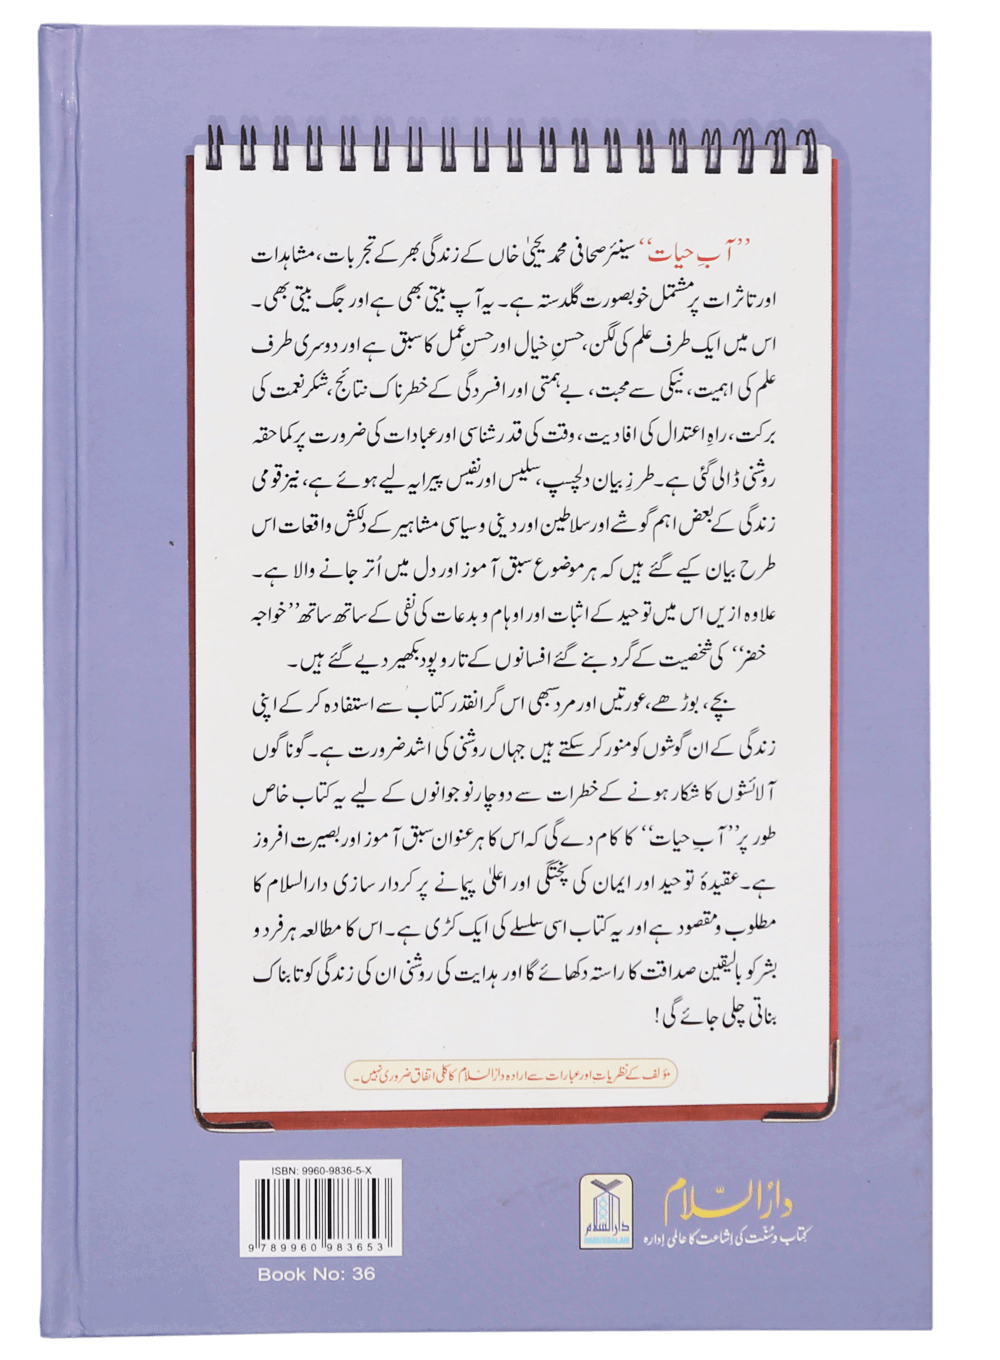 ”آبِ حیات“ سینئر صحافی محمد یحییٰ خاں کے زندگی بھر کے تجربات، مشاہدات
اور تاثرات پر مشتمل خوبصورت گلدستہ ہے۔ یہ آپ بیتی بھی ہے اور جگ بیتی بھی۔
اس میں ایک طرف علم کی لگن، حسنِ خیال اور حسنِ عمل کا سبق ہے اور دوسری طرف
علم کی اہمیت، نیکی سے محبت، بے ہمتی اور افسردگی کے خطرناک نتائج، شکر نعمت کی
برکت، راہِ اعتدال کی افادیت، وقت کی قدر شناسی اور عبادات کی ضرورت پر کماحقہ
روشنی ڈالی گئی ہے۔ طرزِ بیان دلچسپ، سلیس اور نفیس پیرایہ لیے ہوئے ہے، نیز قومی
زندگی کے بعض اہم گوشے اور سلاطین اور دینی و سیاسی مشاہیر کے دلکش واقعات اس
طرح بیان کیے گئے ہیں کہ ہر موضوع سبق آموز اور دل میں اُتر جانے والا ہے۔
علاوہ ازیں اس میں توحید کے اثبات اور اوہام و بدعات کی نفی کے ساتھ ساتھ ”خواجہ
خضر“ کی شخصیت کے گرد بنے گئے افسانوں کے تار و پود بکھیر دیے گئے ہیں۔
بچے، بوڑھے، عورتیں اور مرد سبھی اس گرانقدر کتاب سے استفادہ کر کے اپنی
زندگی کے ان گوشوں کو منور کر سکتے ہیں جہاں روشنی کی اشد ضرورت ہے۔ گوناگوں
آلائشوں کا شکار ہونے کے خطرات سے دوچار نوجوانوں کے لیے یہ کتاب خاص
طور پر ”آبِ حیات“ کا کام دے گی کہ اس کا ہر عنوان سبق آموز اور بصیرت افروز
ہے۔ عقیدۂ توحید اور ایمان کی پختگی اور اعلیٰ پیمانے پر کردار سازی دارالسلام کا
مطلوب و مقصود ہے اور یہ کتاب اسی سلسلے کی ایک کڑی ہے۔ اس کا مطالعہ ہر فرد و
بشر کو بالیقین صداقت کا راستہ دکھائے گا اور ہدایت کی روشنی ان کی زندگی کو تابناک
بناتی چلی جائے گی!
مؤلف کے نظریات اور عبارات سے ادارہ دارالسلام کا کلی اتفاق ضروری نہیں۔
ISBN: 9960-9836-5-X
9 789960 983653
Book No: 36
دارالسلام
DARUSSALAM
دارالسّلام
کتاب و سنّت کی اشاعت کا عالمی ادارہ